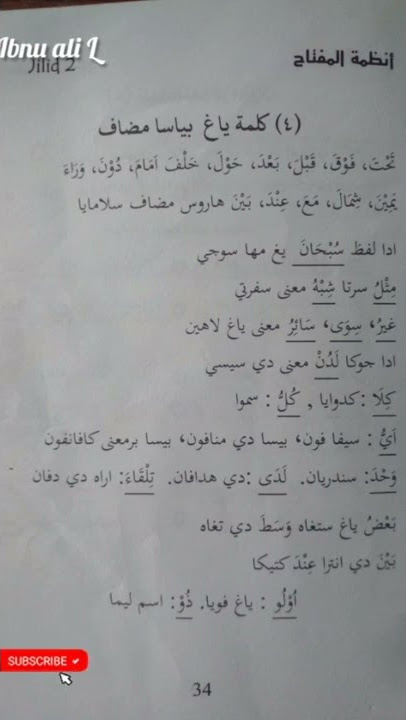 Ibnu ali L
Jilid 2
أنظمة المفتاح
(٤) كلمة ياغ بياسا مضاف
تَحْتَ، فَوْقَ، قَبْلَ، بَعْدَ، حَوْلَ، خَلْفَ اَمَامَ، دُوْنَ، وَرَاءَ
يَمِيْنَ، شِمَالَ، مَعَ، عِنْدَ، بَيْنَ هاروس مضاف سلامايا
ادا لفظ سُبْحَانَ يغ مها سوجي
مِثْلُ سرتا شِبْهُ معنى سفرتي
غَيرُ، سِوَى، سَائِرُ معنى ياغ لاهين
ادا جوكا لَدُنْ معنى دي سيسي
كِلَا : كدوايا , كُلُّ : سموا
اَيُّ : سيفا فون، بيسا دي منافون، بيسا برمعنى كافانفون
وَحْدَ: سندريان. لَدَى :دي هدافان. تِلْقَاءَ: اراه دي دفان
بَعْضُ ياغ ستغاه وَسَطَ دي تغاه
بَيْنَ دي انترا عِنْدَ كتيكا
اُوْلُو : ياغ فويا. ذُوْ: اسم ليما
SUBSCRIBE
34